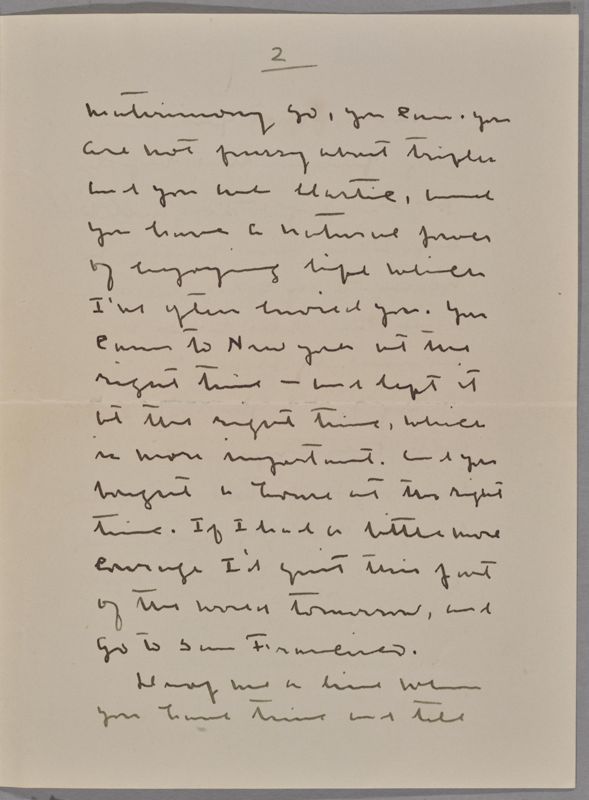 2
matrimony go, you can. You
are not fussy about trifles
and you are elastic, and
you have a natural power
of enjoying life which
I've often envied you. You
came to New York at the
right time — and left it
at the right time, which
is more important. And you
bought a home at the right
time. If I had a little more
courage I'd quit this part
of the world tomorrow, and
go to San Francisco.
Drop me a line when
you have time and tell